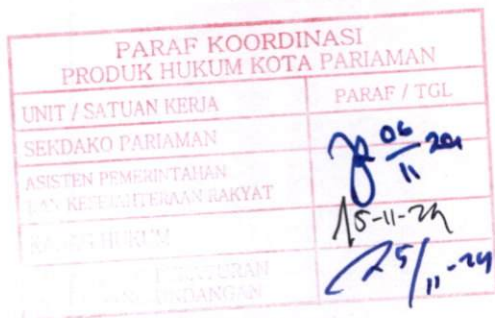 PARAF KOORDINASI
PRODUK HUKUM KOTA PARIAMAN
UNIT / SATUAN KERJA PARAF / TGL
SEKDAKO PARIAMAN
06/11
ASISTEN PEMERINTAHAN
DAN KESEJAHTERAAN RAKYAT
15-11-24
HUKUM
PERATURAN
5/11-24